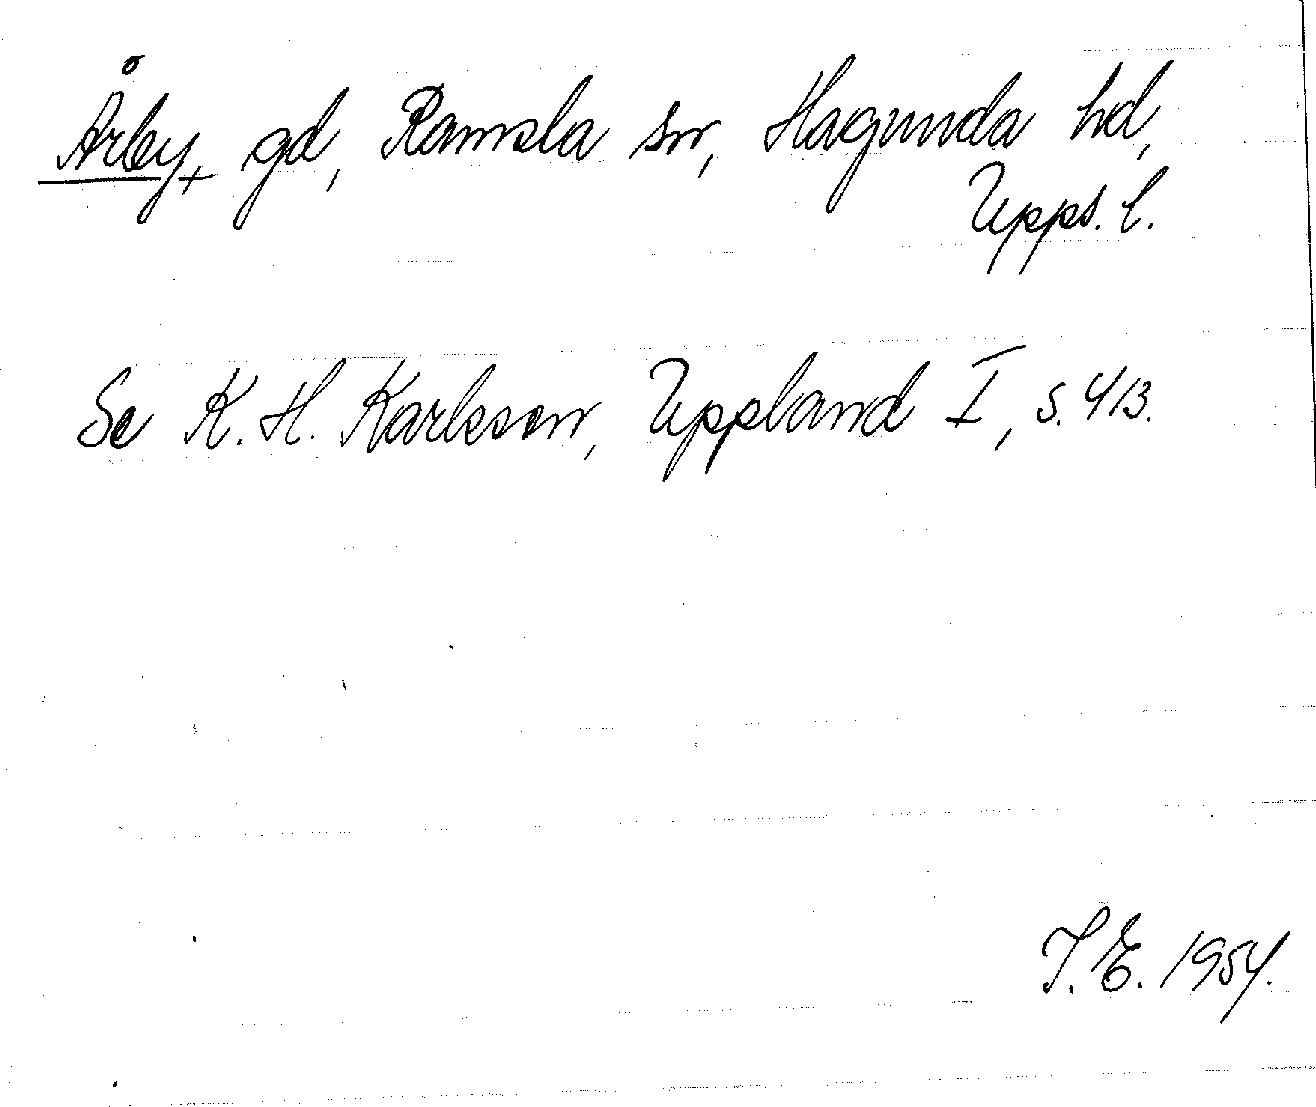 Årby, gd, Ramsla sn, Hagunda hd,
Upps. l.
Se K. H. Karlsson, Uppland I, s. 413.
T. E. 1954.